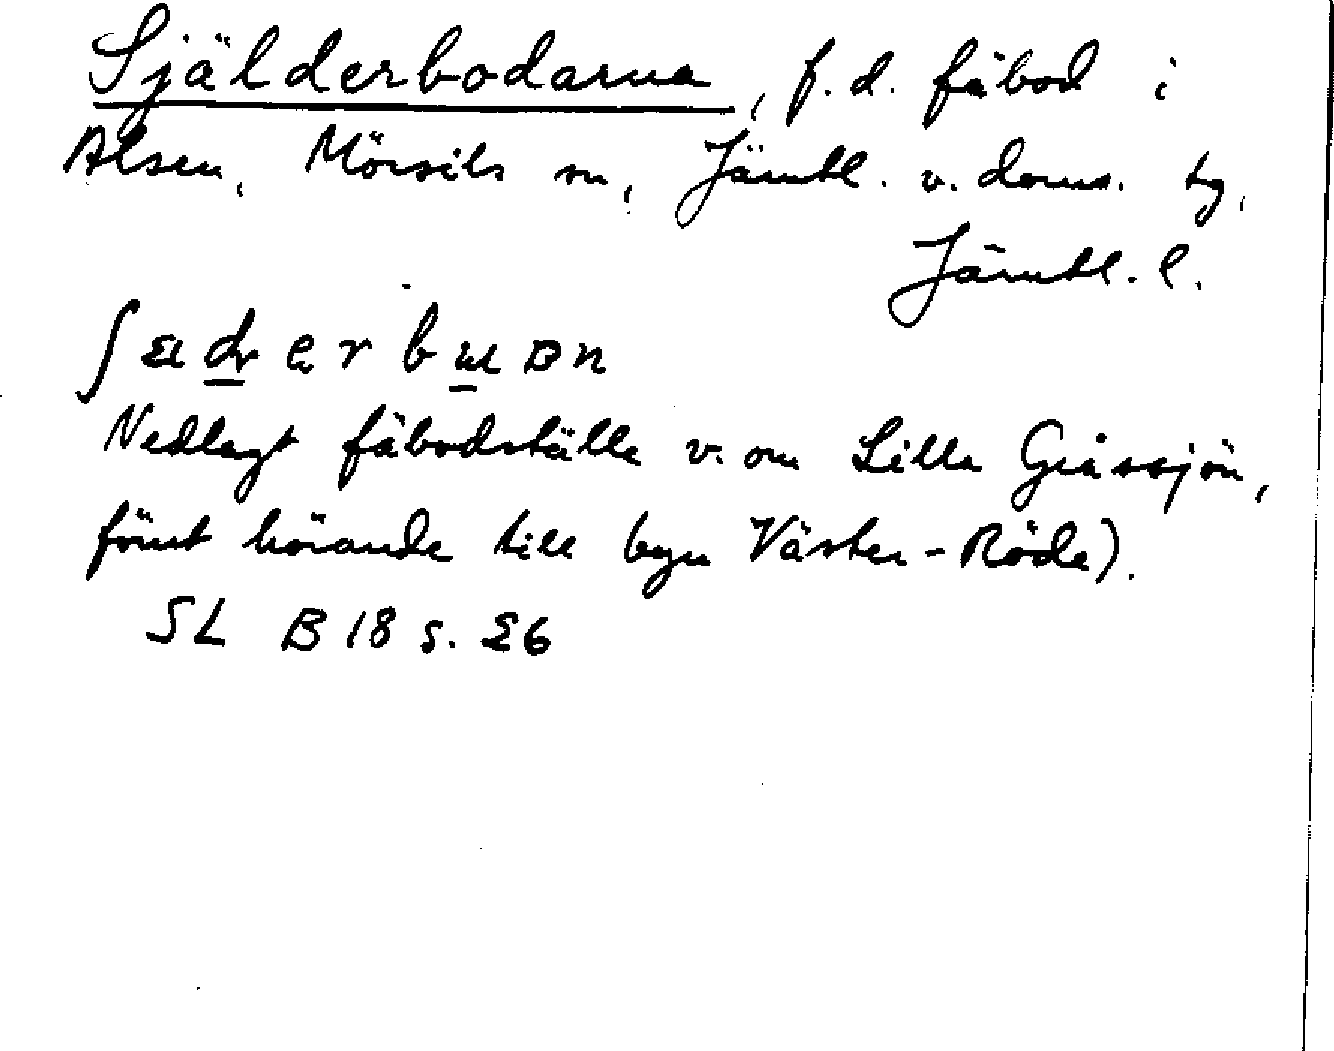 Själderbodarna, f.d. fäbod i
Alsen, Mörsils sn, Jämtl. v. doms. tg,
Jämtl. l.
Nedlagt fäbodställe v. om Lilla Gråssjön,
förut hörande till byn Väster-Röde).
SL B 18 s. 26